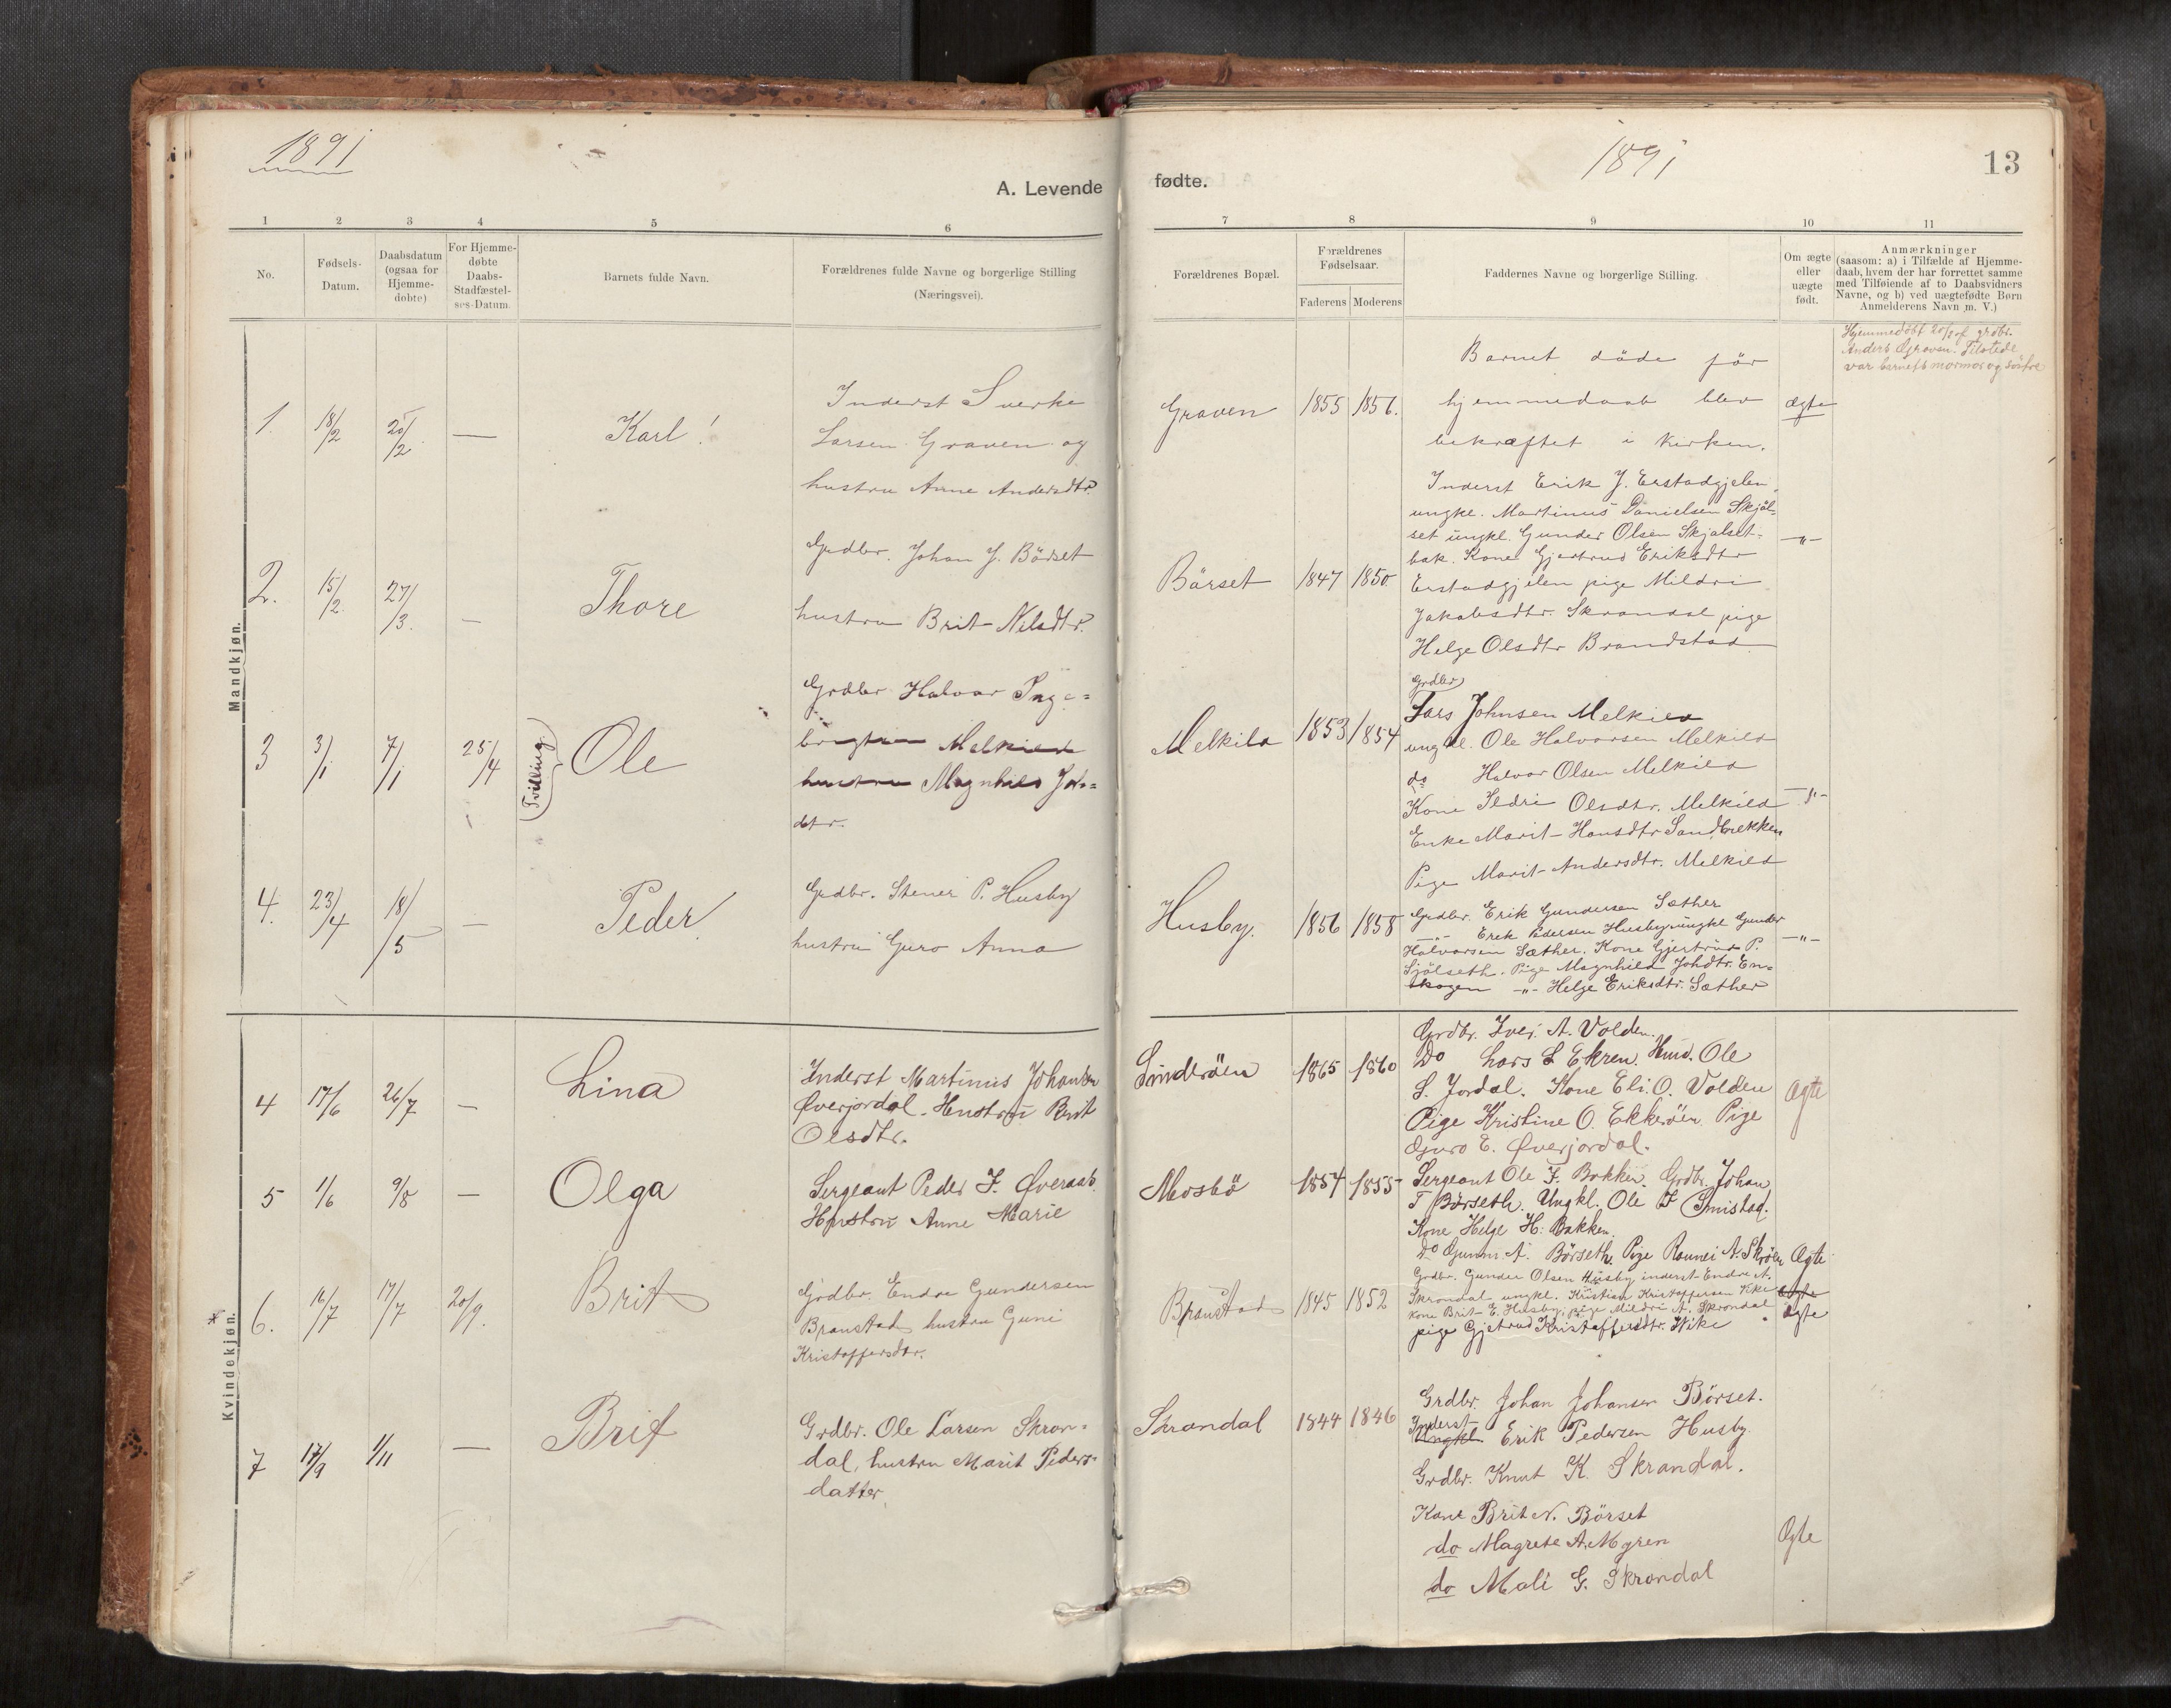 1891
A. Levende
1 2 3 4 5 6
No.
Fødsels-
Datum.
Daabsdatum
(ogsaa for
Hjemme-
døbte)
For Hjemme-
døbte
Daabs-
Stadfæstel-
ses-Datum.
Barnets fulde Navn.
Forældrenes fulde Navne og borgerlige Stilling
(Næringsvei).
Mandkjøn.
1. 18/2 20/2 — Karl!
Inderst Sverke
Larsen Graven og
hustru Anne Andersdtr.
2. 15/2 27/3. — Thore
Grdbr. Johan J. Börset
hustru Brit Nilsdtr.
3 3/1 7/1 25/4 (Tvilling) Ole
Grdbr Halvor Inge=
brigtsen Melkild
hustru Magnhild Joh=
dtr.
4. 23/4 18/5 — Peder
Grdbr. Stener P. Husby
hustru Guro Anna
Kvindekjøn.
4 17/6 26/7 — Lina
Inderst Martinus Johansen
Øverjordal. Hustru Brit
Olsdtr.
5 1/6 9/8 — Olga
Sergeant Peder J. Øveraas.
Hustru Anne Marie
6. 16/7 17/7 20/9. Brit
Grdbr. Endre Gundersen
Branstad hustru Guni
Kristoffersdtr.
7 17/9 1/11 — Brit
Grdbr. Ole Larsen Skron=
dal, hustru Marit Peders=
datter
1891
13
fødte.
7 8 9 10 11
Forældrenes Bopæl.
Forældrenes
Fødselsaar.
Faderens Moderens
Faddernes Navne og borgerlige Stilling.
Om ægte
eller
uægte
født.
Anmærkninger
(saasom: a) i Tilfælde af Hjemme-
daab, hvem der har forrettet samme
med Tilføiende af to Daabsvidners
Navne, og b) ved uægtefødte Børn
Anmelderens Navn m. V.)
Hjemmedöbt 20/2 af grdbr.
Anders Graven. Tilstede
var barnets mormor og
Graven 1855 1856.
Barnet döde för
hjemmedaab blev
bekræftet i Kirken.
ægte
Börset 1847 1850
Inderst Erik J. Erstadgjelen
ungkl. Martinus Danielsen Skjöl=
set ungkl. Gunder Olsen Skjölset-
bak. Kone Gjertrud Eriksdtr
Erstadgjelen pige Mildri
Jakobsdtr. Skrondal pige
Helge Olsdtr Brandstad
—"—
Melkild 1853 1854
Grdbr
Lars Johnsen Melkild
ungkl. Ole Halvorsen Melkild
do Halvor Olsen Melkild
Kone Sedri Olsdtr. Melkild
Enke Marit Hansdtr Sandbrekken
Pige Marit Andersdtr. Melkild
—"—
Husby. 1856 1858
Grdbr. Erik Gundersen Sæther
—"— Erik Pedersen Husby ungkl Gunder
Halvorsen Sæther. Kone Gjertrud P.
Sjölseth. Pige Magnhild Johdtr. En=
skogen —"— Helge Eriksdtr. Sæther
—"—
Linderöen 1865 1860
Grdbr. Iver A. Volden.
Do Lars L Ekren. Husd. Ole
S. Jordal. Kone Eli O. Volden
Pige Kristine O. Ekkeröen. Pige
Guro E. Øverjordal.
Ægte
Mosbö 1854 1855
Sergeant Ole F. Bakken. Grdbr. Johan
T Børseth. Ungkl. Ole F Smistad.
Kone Helge H. Bakken.
Do Gunni A. Børseth. Pige Rannei A. Skröen
Ægte
Branstad 1845 1852
Grdbr. Gunder Olsen Husby inderst Endre A.
Skrondal ungkl. Kristian Kristoffersen
Kone Brit E. Husby, pige Mildri A. Skrondal
pige Gjertrud Kristoffersdtr. Wike
ægte
Skrondal 1844 1846
Grdbr. Johan Johansen Börset.
Inderst
Ungkl. Erik Pedersen Husby.
Grdbr. Knut K. Skrondal.
Kone Brit N. Börset
do Magrete A. Myren
do Mali G. Skrondal
Ægte